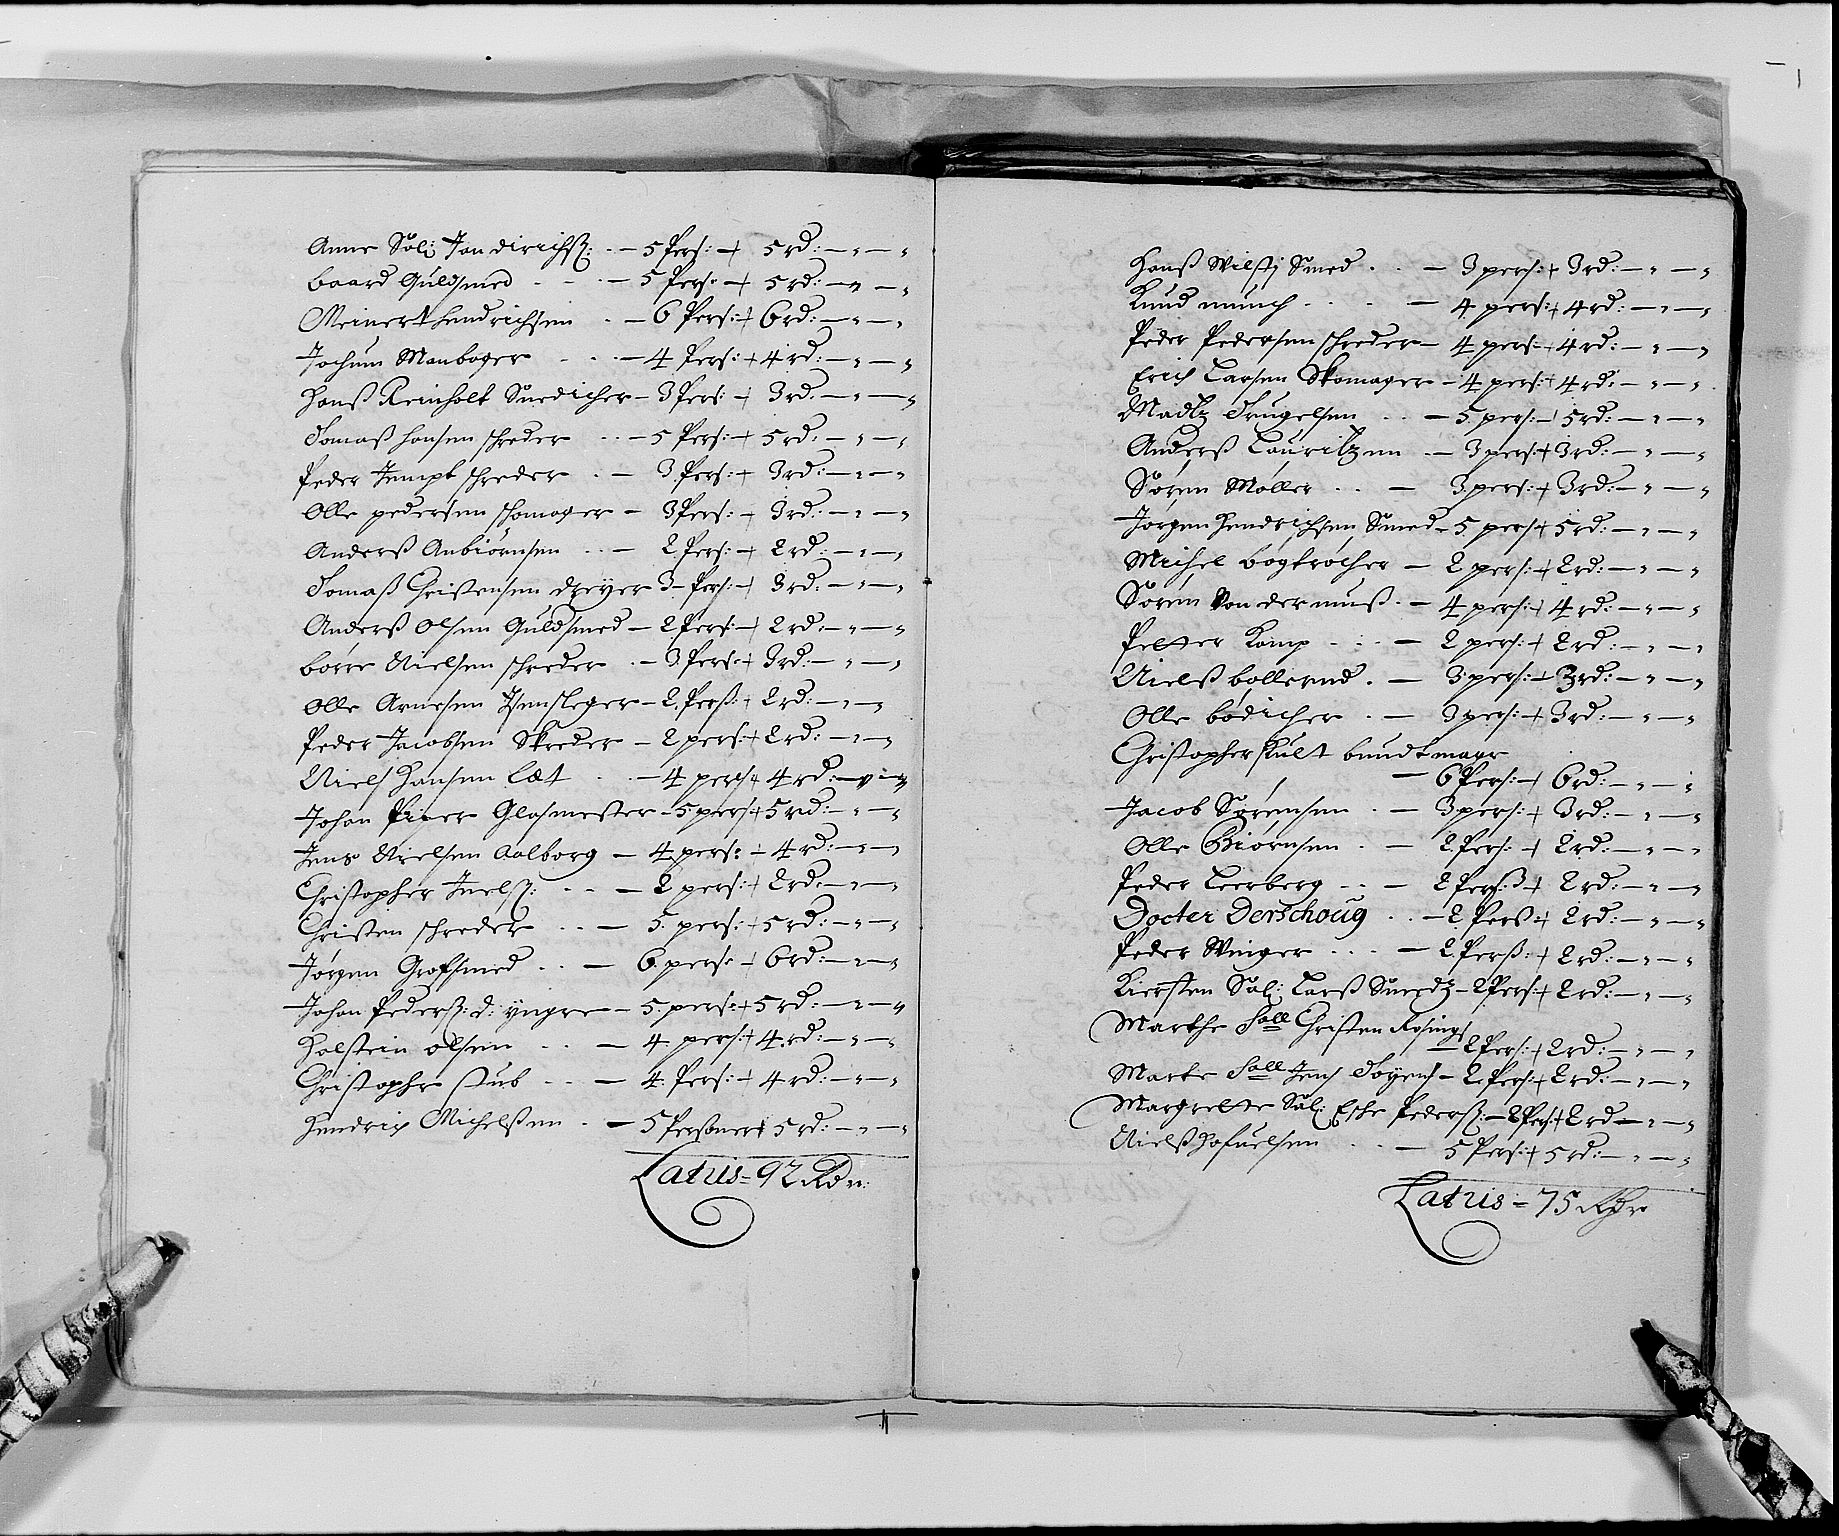 Anne Sal: Jan dirichß: - 5 Pers: + 5 rd: - " - "
baard Guldsmed - 5 Pers: + 5 rd: - " - "
Meinert hendrichsen - 6 Pers: + 6 rd: - " - "
Jochum Manbager - 4 Pers: + 4 rd: - " - "
Hanß Reinholt Snedicher - 3 Pers: + 3 rd: - " - "
Tomaß hansen schreder - 5 Pers: + 5 rd: - " - "
Peder Jempt schreder - 3 Pers: + 3 rd: - " - "
Olle pedersen schomager - 3 Pers: - 3 rd: - " - "
Anderß Anbiørnsen - 2 Pers: + 2 rd: - " - "
Tomaß Christensen dreyer 3 - Pers: + 3 rd: - " - "
Anderß Olsen Guldsmed - 2 Pers: + 2 rd: - " - "
børre Nielsen schreder - 3 Pers: + 3 rd: - " - "
Olle Arnesen - 2 Perß: + 2 rd: - " - "
Peder Jacobsen Skreder - 2 pers: + 2 rd: - " - "
Niels Hansen Læt - 4 pers + 4 rd: - " - "
Johan Glasmester - 5 pers + 5 rd: - " - "
Jens Nielsen Aalborg - 4 pers: - 4 rd: - " - "
Christopher Juelß: - 2 pers: + 2 rd: - " - "
Christen schreder - 5 pers: + 5 rd: - " - "
Jørgen Grofsmed - 6 pers: - 6 rd: - " - "
Johan Pederß: d: yngre - 5 pers: + 5 rd: - " - "
Holstein olsen - 4 pers: + 4 rd: - " - "
Christopher stub - 4 Pers: + 4 rd: - " - "
Hendrich Michelßen - 5 Personer + 5 rd: - " - "
Latus = 92 Rdr:
Hanß Smed - 3 pers: + 3 rd: - " - "
Knud munch - 4 pers: + 4 rd: - " - "
Peder Pedersen schreder - 4 pers: + 4 rd: - " - "
Erich Larsen Skomager - 4 pers: + 4 rd: - " - "
Madtz Trugelsen - 5 pers: - 5 rd: - " - "
Anderß Lauritzen - 3 pers: + 3 rd: - " - "
Søren Møller - 3 pers: + 3 rd: - " - "
Jørgen Hendrichsen Smed - 5 pers + 5 rd: - " - "
Michel bogtrøcher - 2 pers: + 2 rd: - " - "
Søren Von der muß - 4 pers: + 4 rd: - " - "
Petter Kamp - 2 pers: + 2 rd: - " - "
Nielß - 3 pers: + 3 rd: - " - "
Olle bødicher - 3 pers: + 3 rd: - " - "
Christopher bundtmager
- 6 Pers: + 6 rd: - " - "
Jacob Sørensen - 3 pers: + 3 rd: - " - "
Olle Biørnsen - 2 Pers: + 2 rd: - " - "
Peder Leerberg - 2 Perß + 2 rd: - " - "
Docter Derschoug - 2 Perß + 2 rd: - " - "
Peder Winger - 2 Perß: + 2 rd: - " - "
Kiersten Sal: Larß Snedtz - 2 Pers: + 2 rd: - " - "
Marthe Sall Christen Rosings
- 2 Pers: + 2 rd: - " - "
Marte Sall Jens - 2 Pers: + 2 rd: - " - "
Margrette Sal: Eske Pederß: - 2 Pers: + 2 rd - " - "
Nielß - 5 Pers: + 5 rd: - " - "
Latus = 75 Rdr